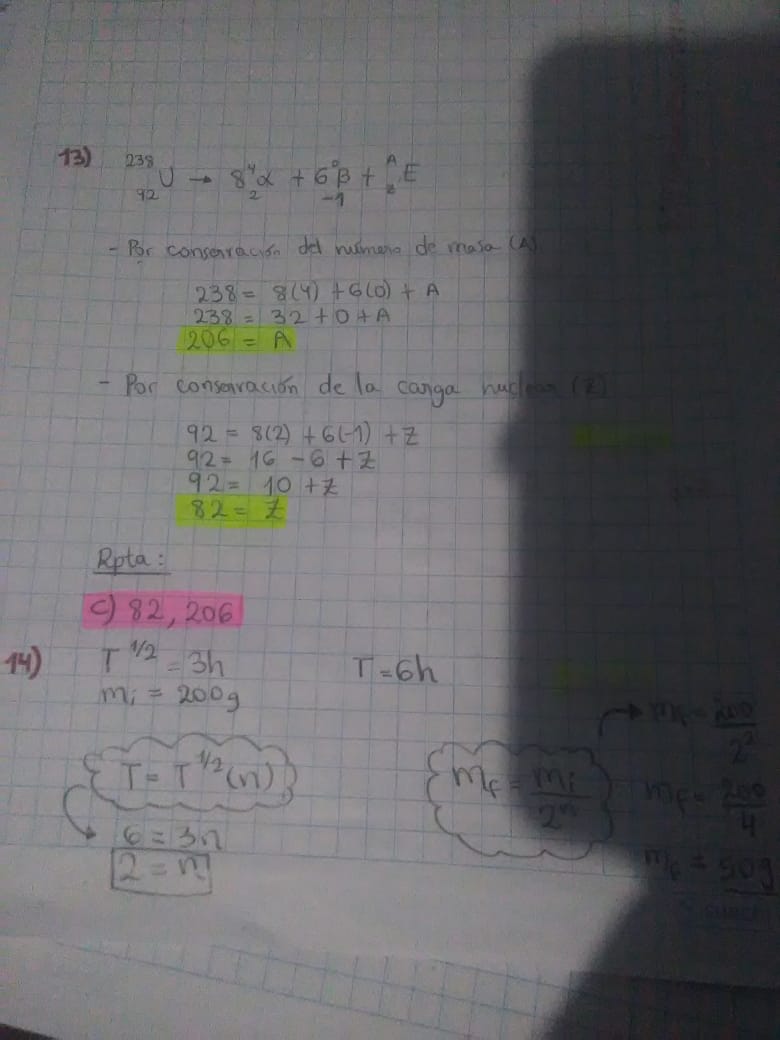 13) ²³⁸₉₂U → 8⁴₂α + 6⁰₋₁β + ᴬ_zE
- Por conservación del número de masa (A).
238 = 8(4) + 6(0) + A
238 = 32 + 0 + A
206 = A
- Por conservación de la carga nuclear (Z)
92 = 8(2) + 6(-1) + Z
92 = 16 - 6 + Z
92 = 10 + Z
82 = Z
Rpta:
C) 82, 206
14) T^1/2 = 3h T = 6h
mi = 200g
T = T^1/2 (n)
6 = 3n
2 = n
mf = mi/2ⁿ
mf = 200/2²
mf = 200/4
mf = 50g